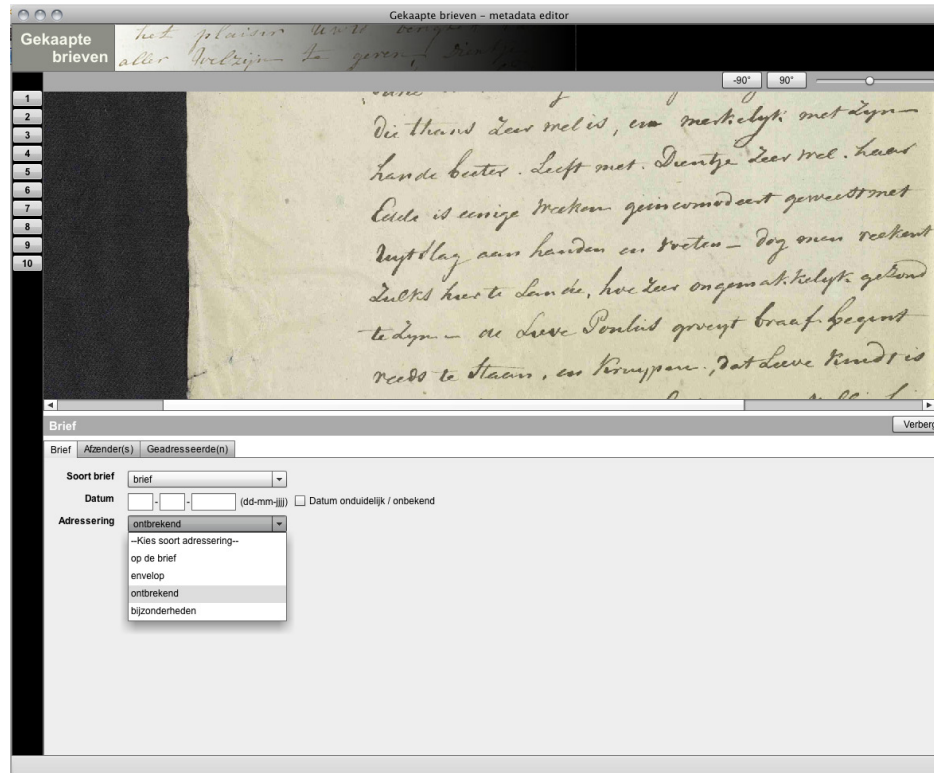 Gekaapte brieven – metadata editor
Gekaapte
brieven
het plaisir UwE
aller Welzijn te geven,
-90°
90°
1
2
3
4
5
6
7
8
9
10
die thans Zeer wel is, en merkelyk met Zyn
hande beeter. Leeft met Dientje Zeer wel. haar
Edele is eenige Weeken geincomodeert geweest met
uytslag aan handen en voeten – dog men reekent
Zulks hier te Lande, hoe Zeer ongemakkelyk gezond
te Zyn – de Lieve Poulus groeyt braaf begint
reeds te Staan, en Kruypen, dat Lieve Kindt is
Brief
Verberg
Brief
Afzender(s)
Geadresseerde(n)
Soort brief
brief
Datum
-
-
(dd-mm-jjjj)
Datum onduidelijk / onbekend
Adressering
ontbrekend
--Kies soort adressering--
op de brief
envelop
ontbrekend
bijzonderheden